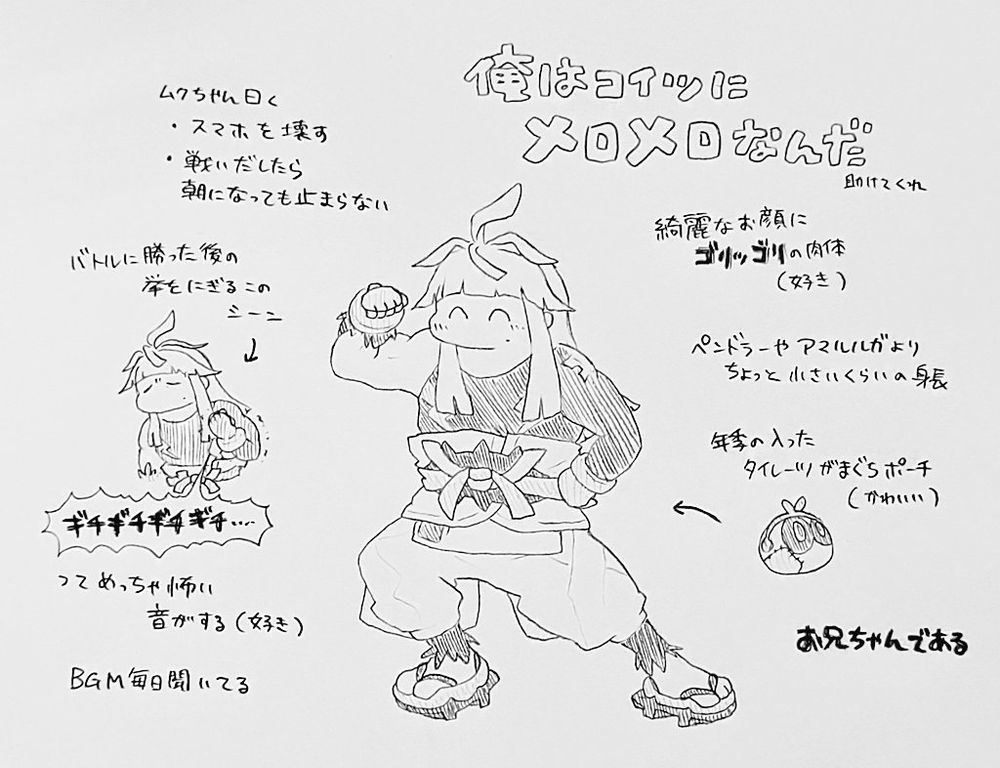 俺はコイツに
メロメロなんだ
助けてくれ
ムクちゃん曰く
・スマホを壊す
・戦いだしたら
朝になっても止まらない
バトルに勝った後の
拳をにぎるこの
シーン
ギチギチギチギチ….
ってめっちゃ怖い
音がする(好き)
BGM毎日聞いてる
綺麗なお顔に
ゴリッゴリの肉体
(好き)
ペンドラーやアマルルガより
ちょっと小さいくらいの身長
年季の入った
タイレーツがまぐちポーチ
(かわいい)
お兄ちゃんである